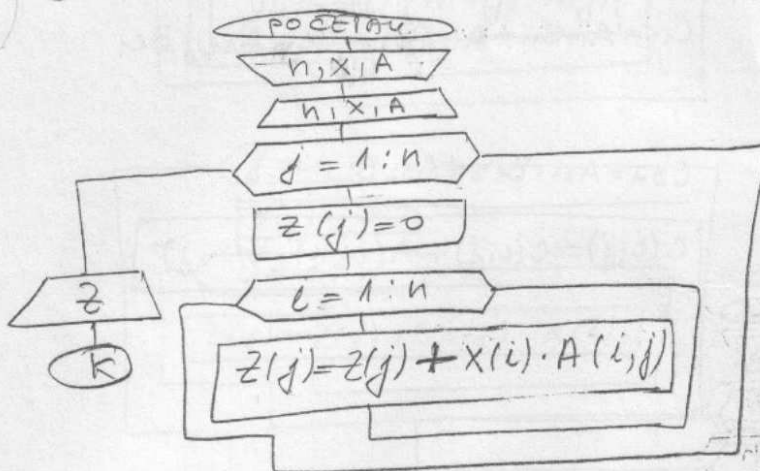 POČETAK
n, x, A
n, x, A
j = 1 : n
z(j) = 0
i = 1 : n
z(j) = z(j) + x(i) · A(i,j)
z
K